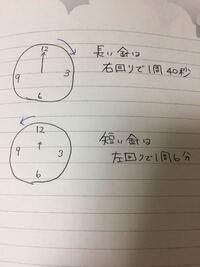 12
9 3
6
長い針は
右回りで1周40秒
12
9 3
6
短い針は
左回りで1周6分